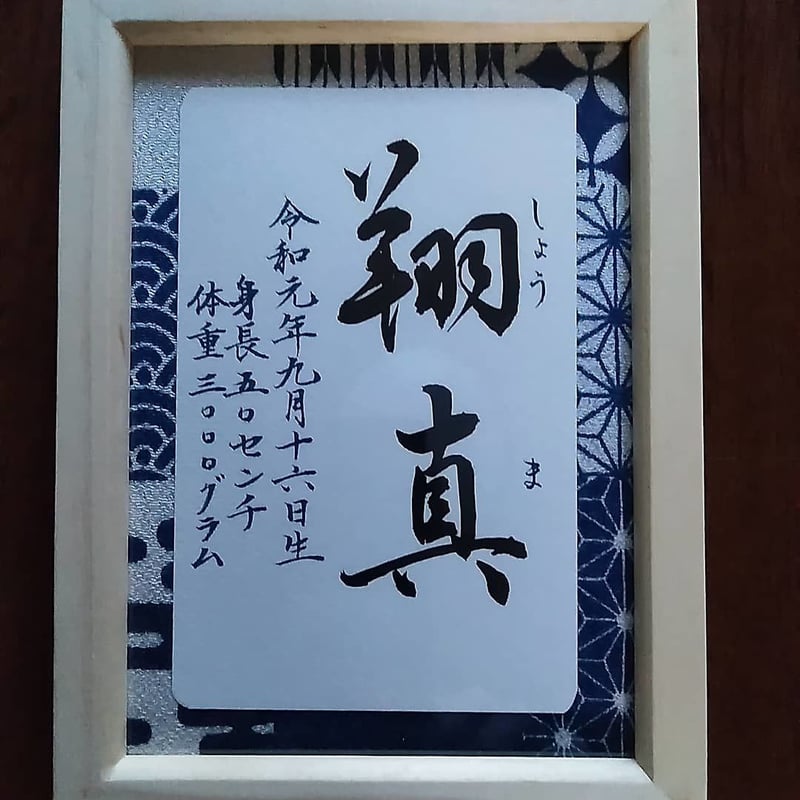 しょうま
翔真
令和元年九月十六日生
身長五〇センチ
体重三〇〇〇グラム